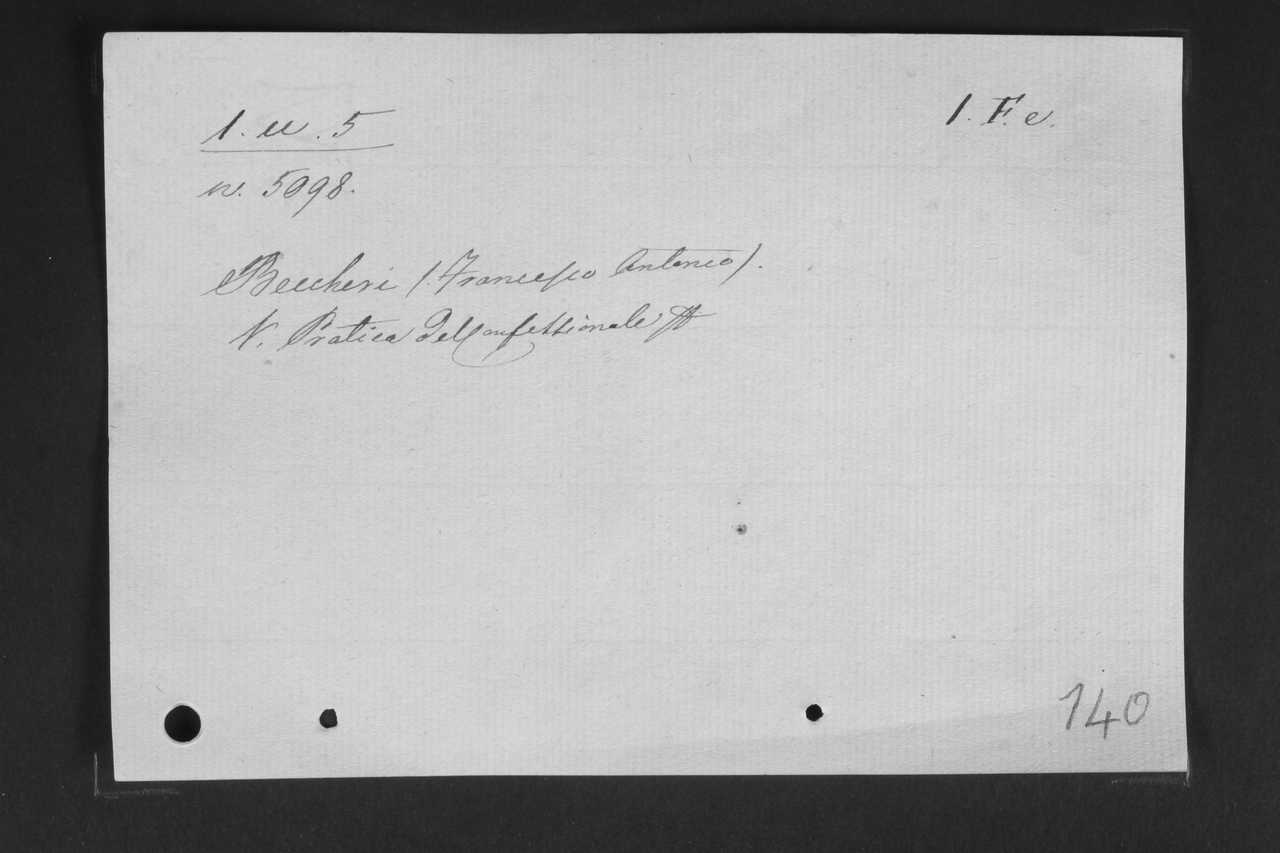 1. u. 5
1. F. e.
n. 5098.
Beccheri (Francesco Antonio).
V. Pratica del Confessionale
140